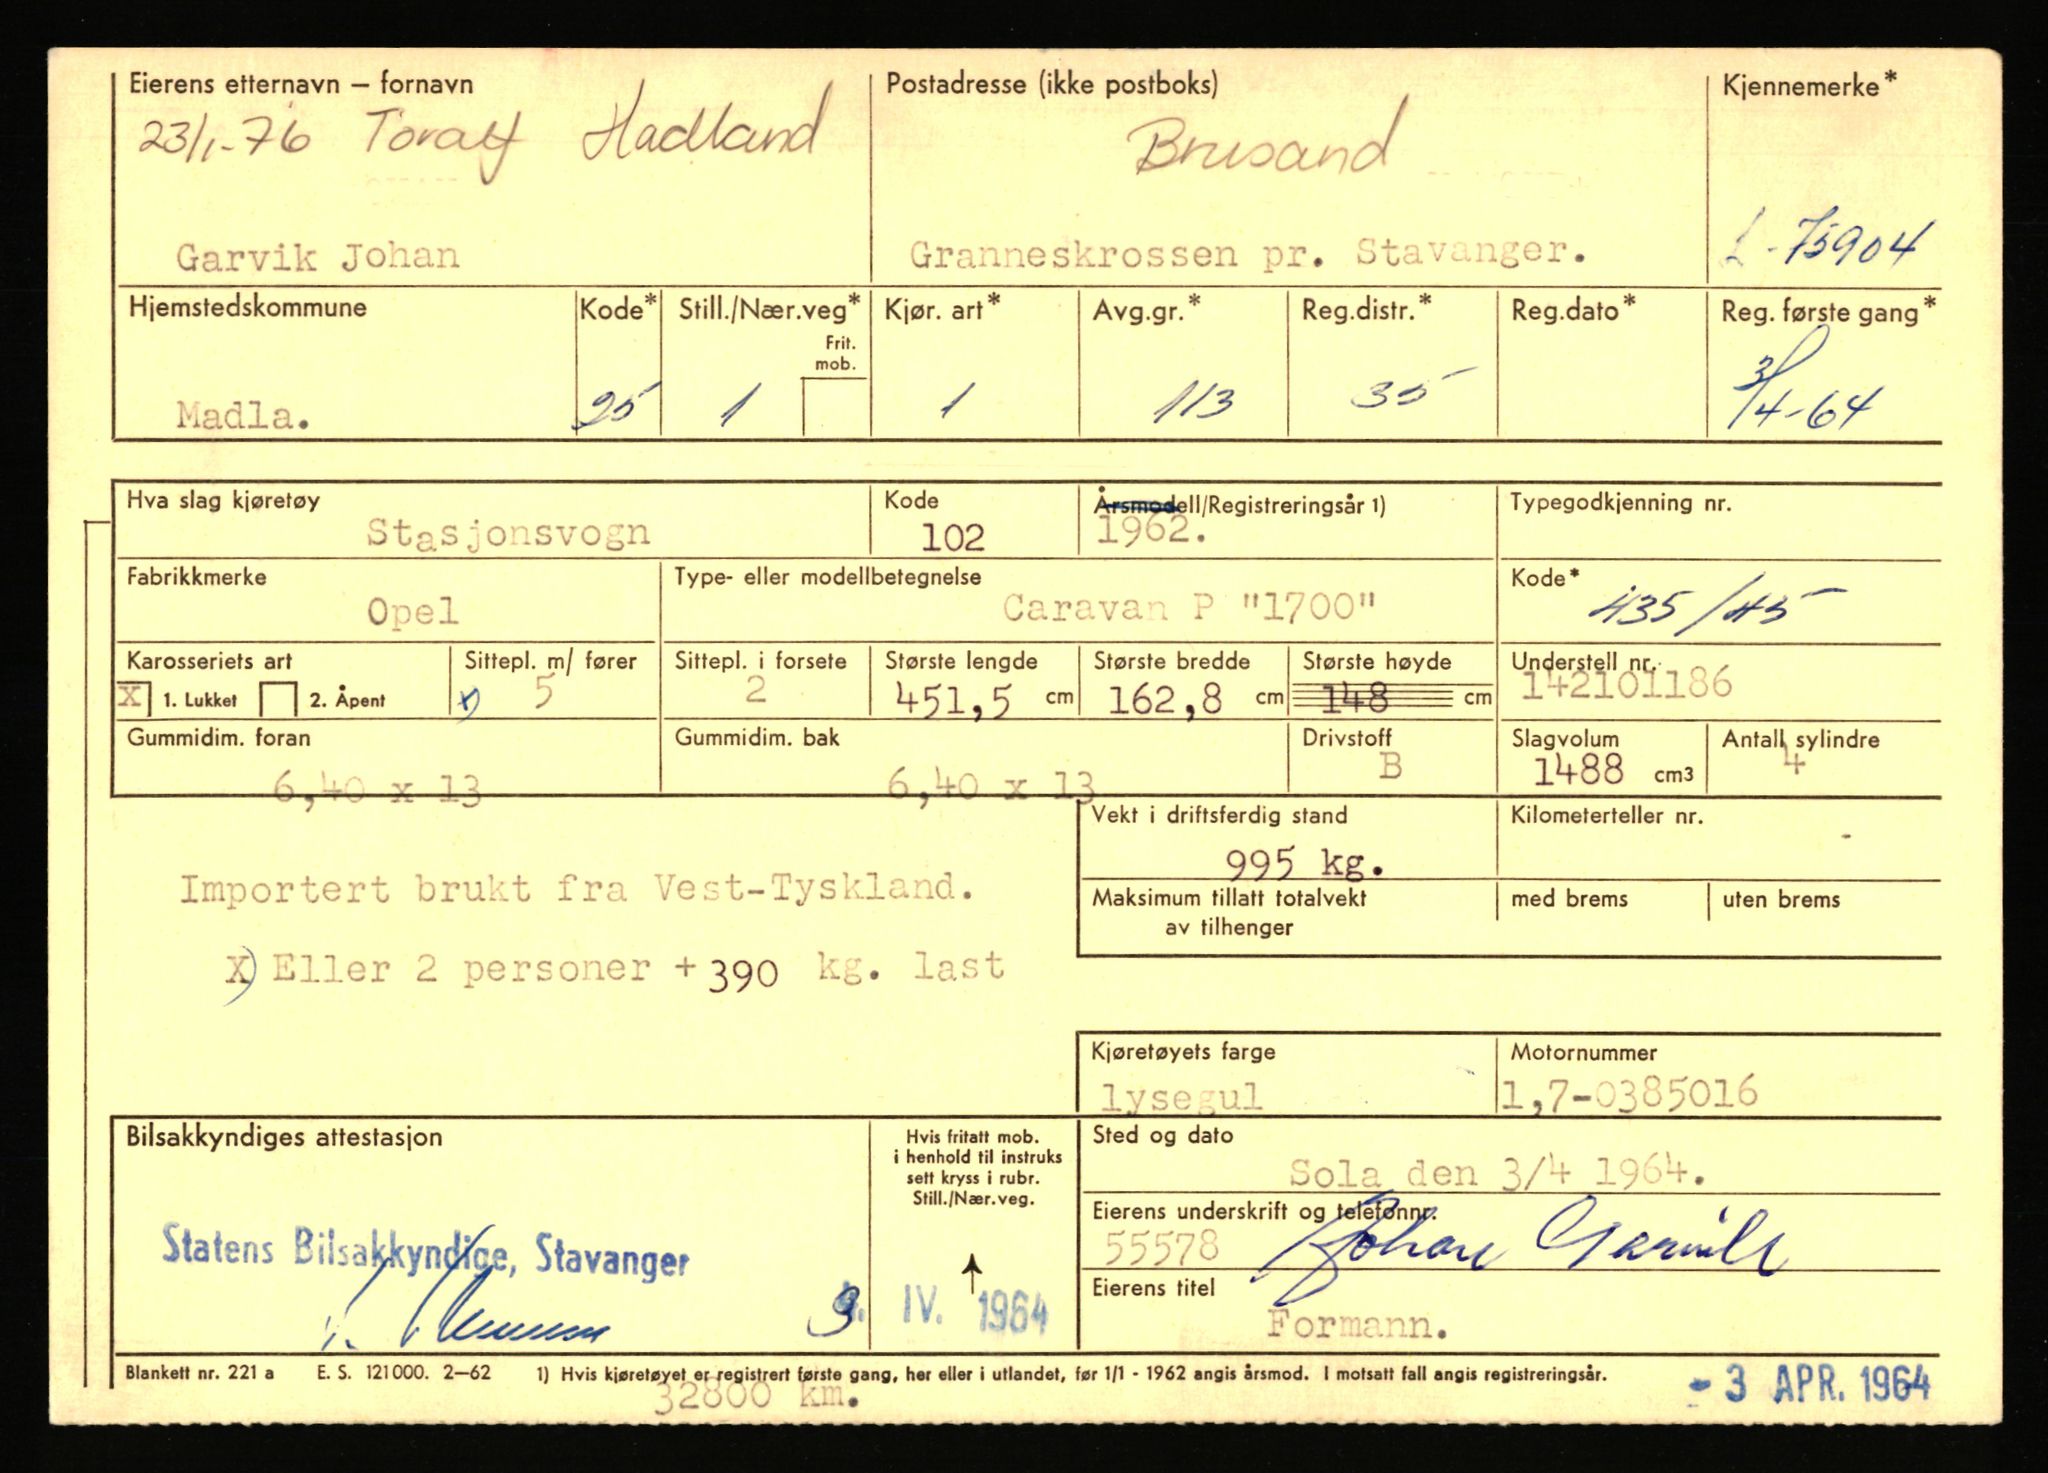 Eierens etternavn – fornavn
Postadresse (ikke postboks)
Kjennemerke*
23/1-76 Toralf Hadland
Brusand
Garvik Johan
Granneskrossen pr. Stavanger.
L-75904
Hjemstedskommune
Kode*
Still./Nær.veg*
Kjør. art*
Avg.gr.*
Reg.distr.*
Reg.dato*
Reg. første gang*
Frit.
mob.
Madla.
25
1
1
113
35
3/4-64
Hva slag kjøretøy
Kode
Årsmodell/Registreringsår 1)
Typegodkjenning nr.
Stasjonsvogn
102
1962.
Fabrikkmerke
Type- eller modellbetegnelse
Kode*
Opel
Caravan P "1700"
435/45
Karosseriets art
Sittepl. m/ fører
Sittepl. i forsete
Største lengde
Største bredde
Største høyde
Understell nr.
X 1. Lukket 2. Åpent
x) 5
2
451,5 cm
162,8 cm
148 cm
142101186
Gummidim. foran
Gummidim. bak
Drivstoff
Slagvolum
Antall sylindre
6,40 x 13
6,40 x 13
B
1488 cm3
4
Vekt i driftsferdig stand
Kilometerteller nr.
995 kg.
Importert brukt fra Vest-Tyskland.
Maksimum tillatt totalvekt
av tilhenger
med brems
uten brems
X) Eller 2 personer + 390 kg. last
Kjøretøyets farge
Motornummer
lysegul
1,7-0385016
Bilsakkyndiges attestasjon
Hvis fritatt mob.
i henhold til instruks
sett kryss i rubr.
Still./Nær.veg.
Sted og dato
Sola den 3/4 1964.
Eierens underskrift og telefonnr.
55578 Johan Garvik
Statens Bilsakkyndige, Stavanger
3. IV. 1964
Eierens titel
Formann.
Blankett nr. 221 a E. S. 121000. 2–62 1) Hvis kjøretøyet er registrert første gang, her eller i utlandet, før 1/1 - 1962 angis årsmod. I motsatt fall angis registreringsår.
32800 km.
- 3 APR. 1964